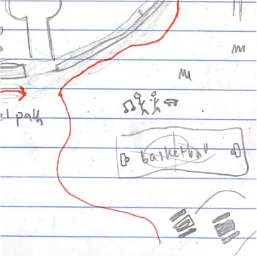 el path
basketball